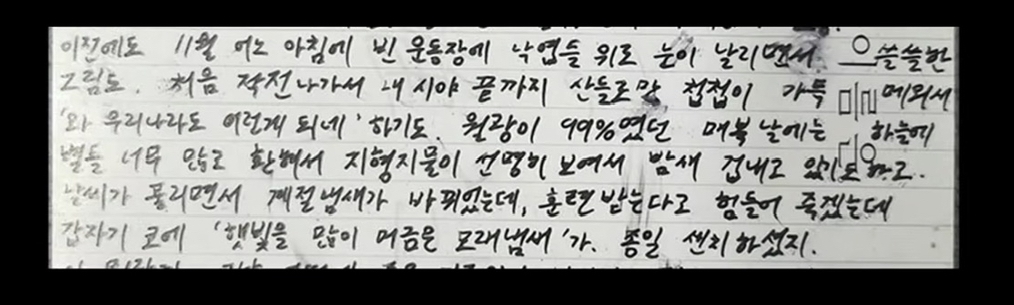 이전에도 11월 어느 아침에 빈 운동장에 낙엽들 위로 눈이 날리면서. 쓸쓸한
그림도. 처음 작전나가서 내 시야 끝까지 산들로만 첩첩이 가득 메워서
'와 우리나라도 이런게 되네' 하기도. 월광이 99%였던 매복 날에는 하늘에
별들 너무 많고 환해서 지형지물이 선명히 보여서 밤새 겁내고 있기도 하고.
날씨가 풀리면서 계절냄새가 바뀌었는데, 훈련 받는다고 힘들어 죽겠는데
갑자기 코에 '햇빛을 많이 머금은 모래냄새'가. 종일 센치하셨지.